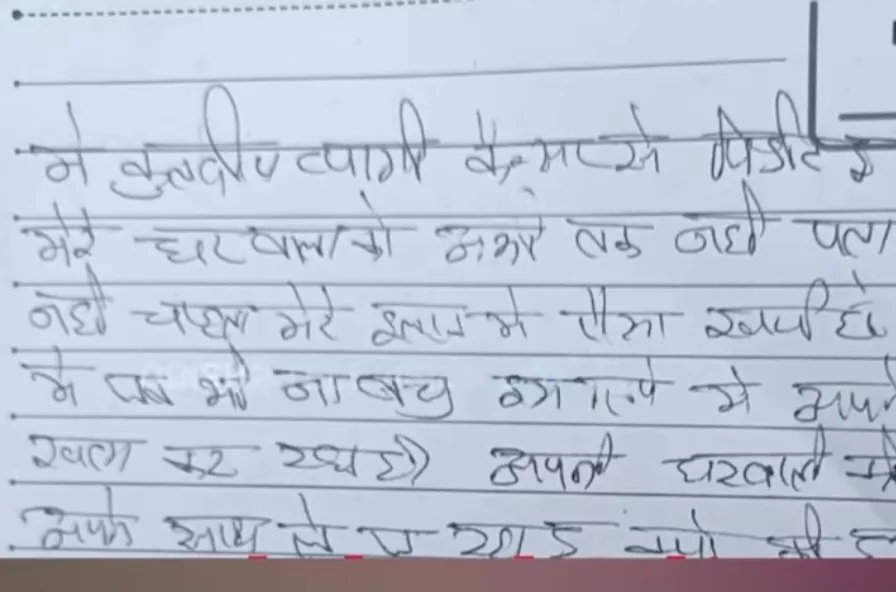 मे कुलदीप त्यागी कैन्सर से पिडीत हु
मेरे घरवालो को अभी तक नही पता
नही चाहता मेरे इलाज मे पैसा खर्च हो
मे तब भी ना बचु इस लिये मे अपने
खत्म कर रहा हो अपनी घरवाली को
अपने साथ ले जा रहा हु क्यो की ह